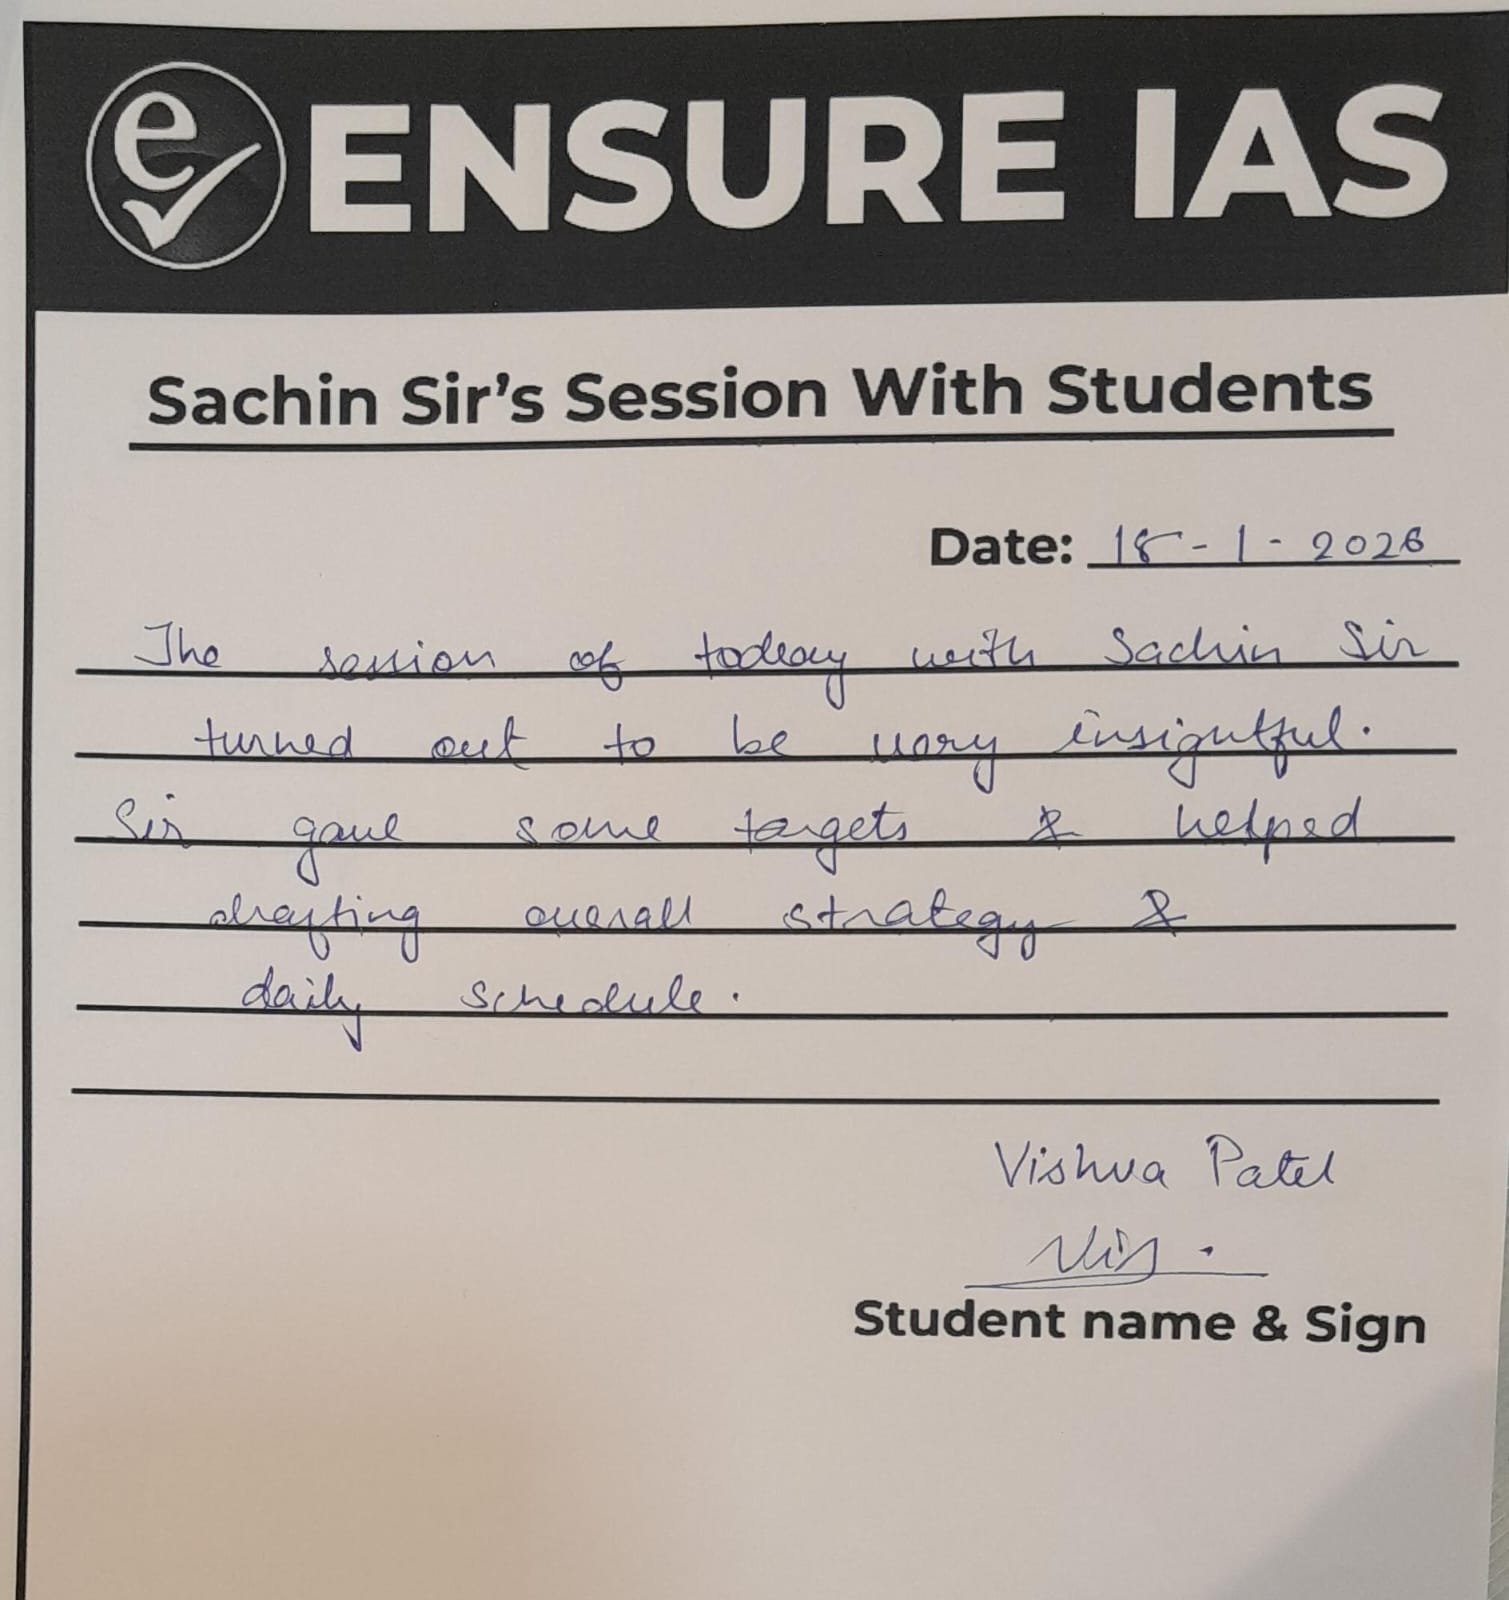 e ENSURE IAS
Sachin Sir's Session With Students
Date: 18-1-2026
The session of today with Sachin Sir
turned out to be very insightful.
Sir gave some targets & helped
drafting overall strategy &
daily schedule.
Vishva Patel
Student name & Sign